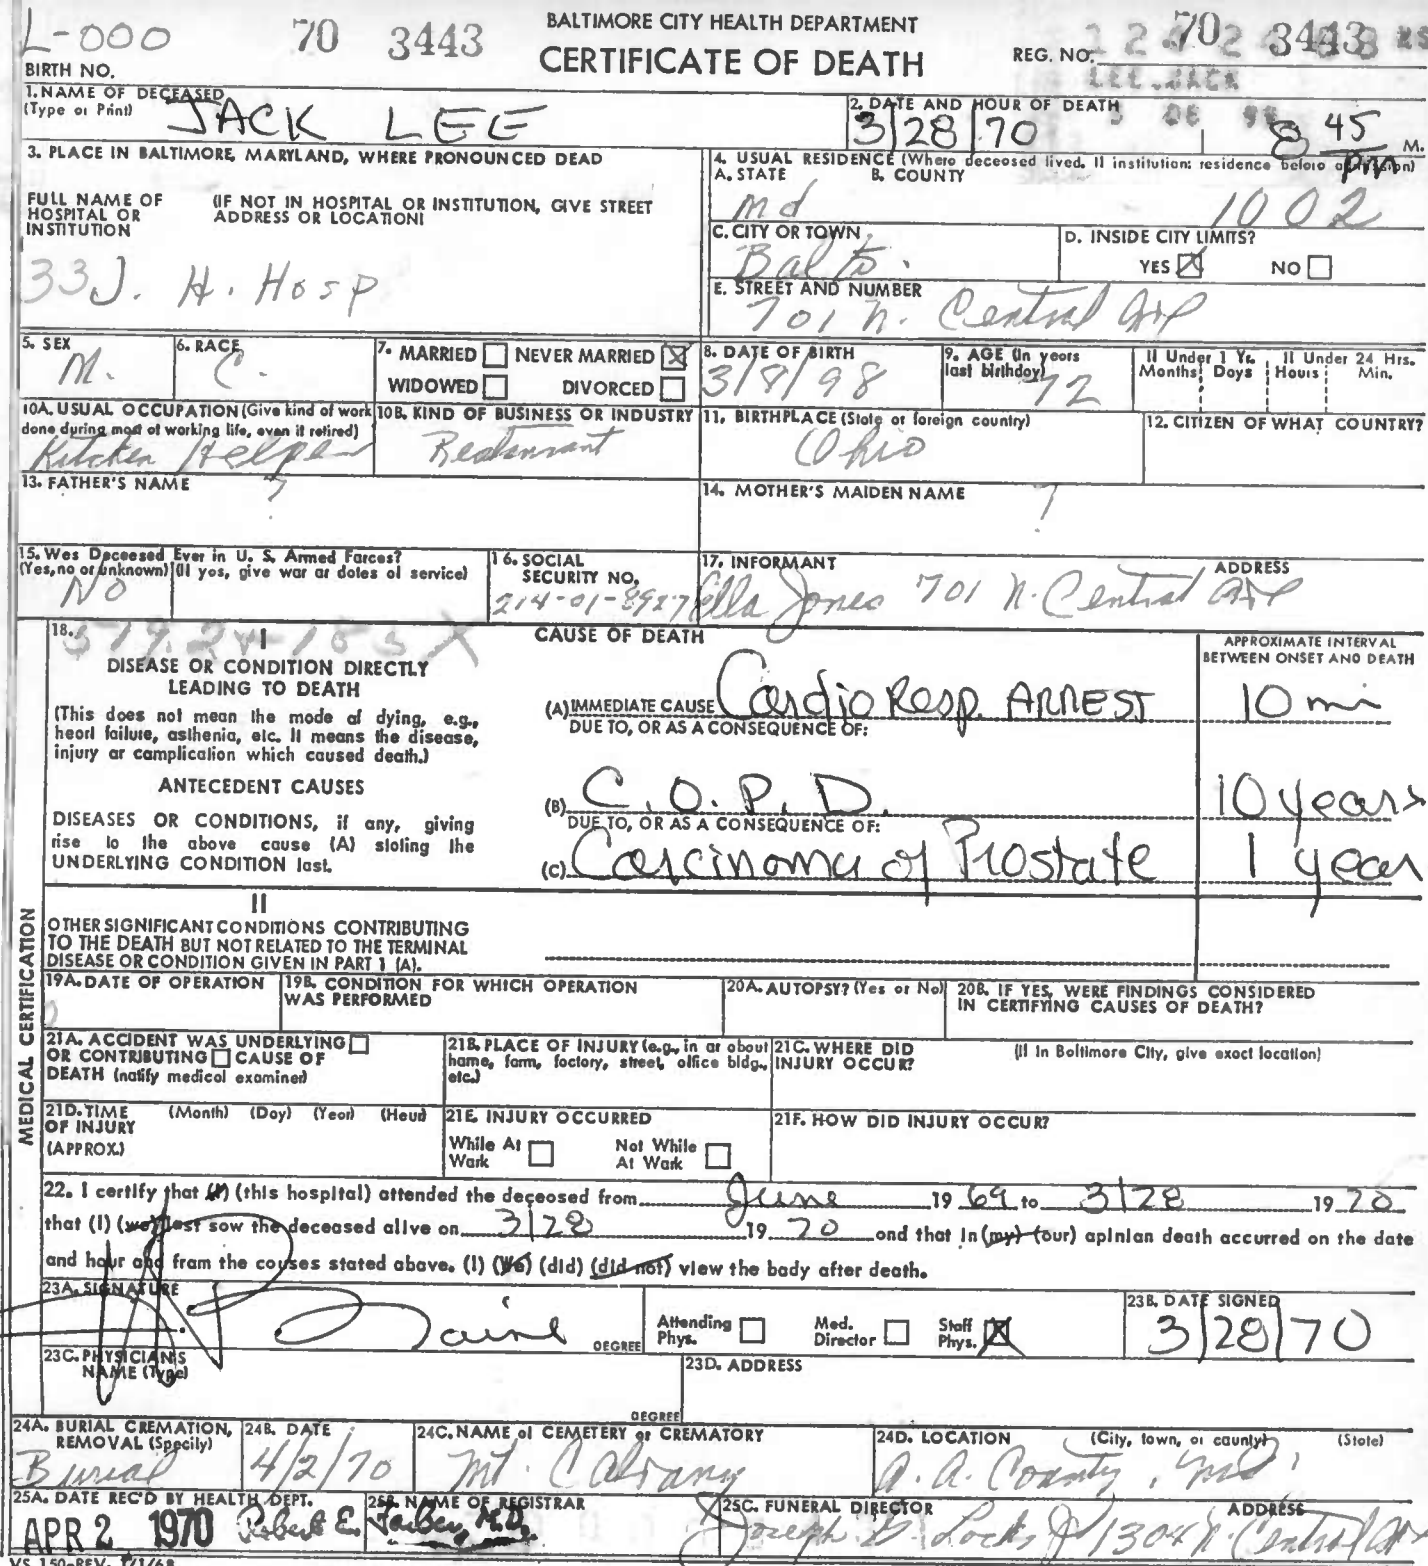 L-000 70 3443 BALTIMORE CITY HEALTH DEPARTMENT
BIRTH NO. CERTIFICATE OF DEATH REG. NO. 70 3443
LEE, JACK
1. NAME OF DECEASED (Type or Print) JACK LEE
2. DATE AND HOUR OF DEATH 3/28/70 8 45 PM M.
3. PLACE IN BALTIMORE, MARYLAND, WHERE PRONOUNCED DEAD
FULL NAME OF HOSPITAL OR INSTITUTION (IF NOT IN HOSPITAL OR INSTITUTION, GIVE STREET ADDRESS OR LOCATION)
33 J. H. Hosp
4. USUAL RESIDENCE (Where deceased lived. If institution: residence before admission)
A. STATE B. COUNTY
Md 1002
C. CITY OR TOWN Balto.
D. INSIDE CITY LIMITS? YES NO
E. STREET AND NUMBER
701 N. Central Ave
5. SEX M.
6. RACE C.
7. MARRIED NEVER MARRIED WIDOWED DIVORCED
8. DATE OF BIRTH 3/8/98
9. AGE (In years last birthday) 72
If Under 1 Yr. Months Days If Under 24 Hrs. Hours Min.
10A. USUAL OCCUPATION (Give kind of work done during most of working life, even if retired) Kitchen Helper
10B. KIND OF BUSINESS OR INDUSTRY Restaurant
11. BIRTHPLACE (State or foreign country) Ohio
12. CITIZEN OF WHAT COUNTRY?
13. FATHER'S NAME ?
14. MOTHER'S MAIDEN NAME ?
15. Was Deceased Ever in U. S. Armed Forces? (Yes, no or unknown) (If yes, give war or dates of service) No
16. SOCIAL SECURITY NO. 214-01-8927
17. INFORMANT ADDRESS
Ella Jones 701 N. Central Ave
18. CAUSE OF DEATH
APPROXIMATE INTERVAL BETWEEN ONSET AND DEATH
I
DISEASE OR CONDITION DIRECTLY LEADING TO DEATH
(This does not mean the mode of dying, e.g., heart failure, asthenia, etc. It means the disease, injury or complication which caused death.)
(A) IMMEDIATE CAUSE Cardio Resp. ARREST 10 mi
DUE TO, OR AS A CONSEQUENCE OF:
ANTECEDENT CAUSES
DISEASES OR CONDITIONS, if any, giving rise to the above cause (A) stating the UNDERLYING CONDITION last.
(B) C.O.P.D. 10 years
DUE TO, OR AS A CONSEQUENCE OF:
(C) Carcinoma of Prostate 1 year
II
OTHER SIGNIFICANT CONDITIONS CONTRIBUTING TO THE DEATH BUT NOT RELATED TO THE TERMINAL DISEASE OR CONDITION GIVEN IN PART 1 (A).
MEDICAL CERTIFICATION
19A. DATE OF OPERATION
19B. CONDITION FOR WHICH OPERATION WAS PERFORMED
20A. AUTOPSY? (Yes or No)
20B. IF YES, WERE FINDINGS CONSIDERED IN CERTIFYING CAUSES OF DEATH?
21A. ACCIDENT WAS UNDERLYING OR CONTRIBUTING CAUSE OF DEATH (notify medical examiner)
21B. PLACE OF INJURY (e.g., in or about home, farm, factory, street, office bldg., etc.)
21C. WHERE DID INJURY OCCUR? (If in Baltimore City, give exact location)
21D. TIME OF INJURY (APPROX.) (Month) (Day) (Year) (Hour)
21E. INJURY OCCURRED While At Work Not While At Work
21F. HOW DID INJURY OCCUR?
22. I certify that (I) (this hospital) attended the deceased from June 1969 to 3/28 1970
that (I) (we) last saw the deceased alive on 3/28 1970 and that in (my) (our) opinion death occurred on the date
and hour and from the causes stated above. (I) (We) (did) (did not) view the body after death.
23A. SIGNATURE DEGREE
Attending Phys. Med. Director Staff Phys.
23B. DATE SIGNED 3/28/70
23C. PHYSICIAN'S NAME (Type) DEGREE
23D. ADDRESS
24A. BURIAL CREMATION, REMOVAL (Specify) Burial
24B. DATE 4/2/70
24C. NAME of CEMETERY or CREMATORY Mt. Calvary
24D. LOCATION (City, town, or county) (State) A. A. County, Md.
25A. DATE REC'D BY HEALTH DEPT. APR 2 1970
25B. NAME OF REGISTRAR Robert E. Farber, M.D.
25C. FUNERAL DIRECTOR ADDRESS
Joseph G. Locks Jr 1304 N. Central Ave
VS 150-REV. 1/1/68